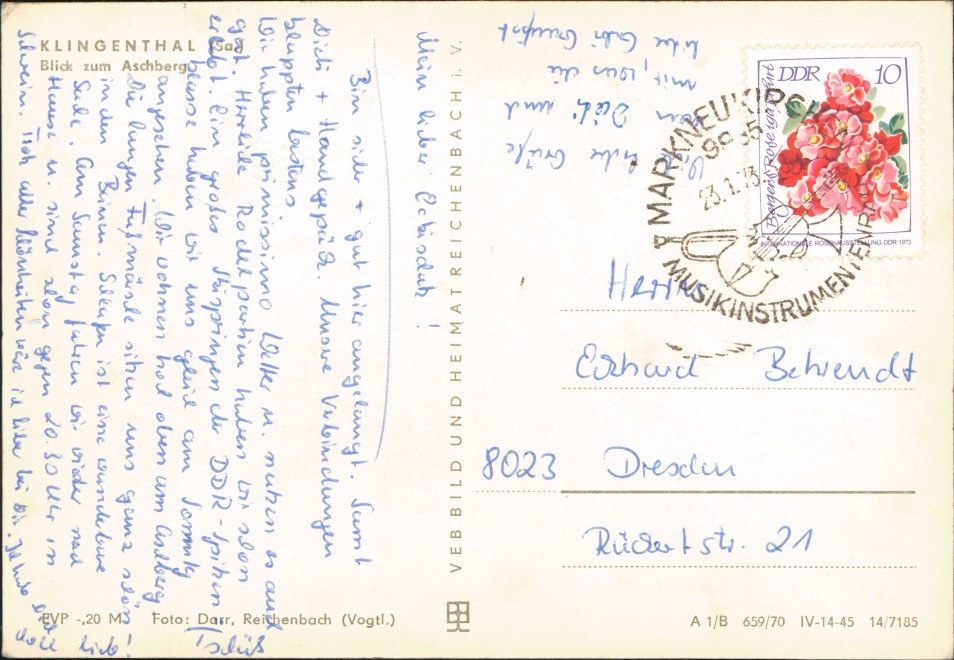 KLINGENTHAL (Sa.)
Blick zum Aschberg
Mein lieber Eckischatz!
Bin sicher + gut hier angelangt. Samt
Dicti + Handgepäck. Unsere Verbindungen
klappten bestens
Wir haben primissimo Wetter u. nutzen es auch
gut. Herrliche Rodelpartien haben wir schon
erlebt. Ein großes Skispringen der DDR-Spitzen-
klasse haben wir uns gleich am Sonntag
angesehen. Wir wohnen hoch oben am Aschberg
Die langen Fußmärsche sitzen uns ganz schön
in den Beinen. Schlafen ist eine wunderbare
Sache. Am Samstag fahren wir wieder nach
Hause u. sind schon gegen 20.30 Uhr in
Schwerin. Trotz aller Schönheiten wär ich lieber bei Dir. Ich hab Dich
doll lieb!
Tschüß
liebe Grüße
von Dicti und
mit, was die
liebe Gabi
VEB BILD UND HEIMAT REICHENBACH i. V.
DDR 10
INTERNATIONALE ROSENAUSSTELLUNG DDR 1972
MARKNEUKIRCHEN
9935
23.1.73
MUSIKINSTRUMENTENFABR
Herrn
Eckhard Behrendt
8023 Dresden
Rückertstr. 21
EVP -,20 M
Foto: Darr, Reichenbach (Vogtl.)
A 1/B 659/70 IV-14-45 14/7185